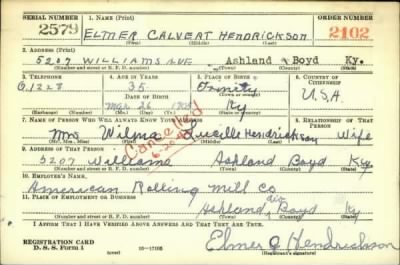 SERIAL NUMBER 1. NAME (Print) ORDER NUMBER
2579 ELMER CALVERT HENDRICKSON 2102
(First) (Middle) (Last)
2. ADDRESS (Print)
5207 WILLIAMS AVE Ashland Boyd Ky.
(Number and street or R. F. D. number) (Town) (County) (State)
3. TELEPHONE 4. AGE IN YEARS 5. PLACE OF BIRTH 6. COUNTRY OF CITIZENSHIP
O.1228 35 Trinity U.S.A.
DATE OF BIRTH (Town or county)
Mar 26 1905 Ky
(Exchange) (Number) (Mo.) (Day) (Yr.) (State or country)
7. NAME OF PERSON WHO WILL ALWAYS KNOW YOUR ADDRESS 8. RELATIONSHIP OF THAT PERSON
Mrs Wilma Lucille Hendrickson Wife
(Mr., Mrs., Miss) (First) (Middle) (Last)
Cancelled
9. ADDRESS OF THAT PERSON
5207 Williams Ashland Boyd Ky
(Number and street or R. F. D. number) (Town) (County) (State)
10. EMPLOYER'S NAME
American Rolling Mill Co
11. PLACE OF EMPLOYMENT OR BUSINESS
Ashland, Boyd Ky
(Number and street or R. F. D. number) (Town) (County) (State)
I AFFIRM THAT I HAVE VERIFIED ABOVE ANSWERS AND THAT THEY ARE TRUE.
REGISTRATION CARD
D. S. S. Form 1 (over) 16—17105
Elmer C Hendrickson
(Registrant's signature)